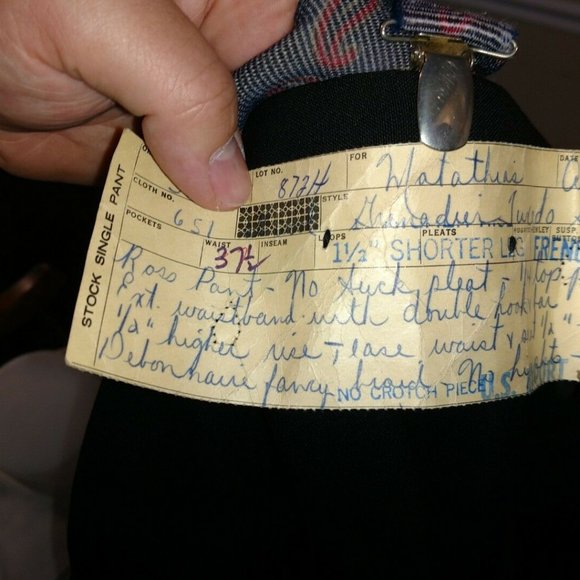 STOCK SINGLE PANT
LOT NO. 872H FOR Matathias DATE
CLOTH NO. 651 STYLE Granadier Tuxedo
POCKETS WAIST 37½ INSEAM LOOPS PLEATS SUSP.
1½" SHORTER LEG FRENC
Ross Pant - No tuck pleat
Ext waistband with double hook
½" higher rise - ease waist ½"
Debonnaire fancy braid - No
NO CROTCH PIECE U.S.